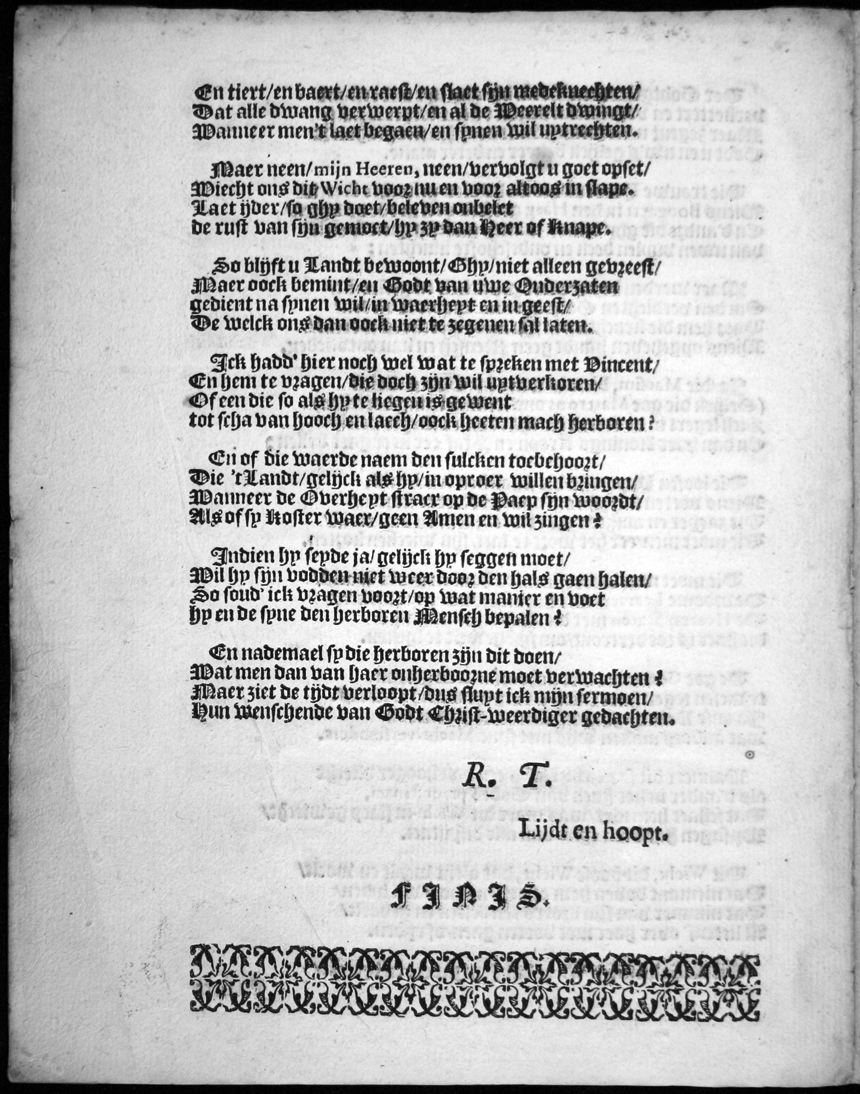 En tiert/en baert/en raest/en slaet sijn medeknechten/
Dat alle dwang verwerpt/en al de Weerelt dwingt/
Wanneer men't laet begaen/en synen wil uytrechten.
Maer neen/mijn Heeren, neen/vervolgt u goet opset/
Wiecht ons dit Wicht voor nu en voor altoos in slape.
Laet ijder/so ghy doet/beleven onbelet
de rust van sijn gemoet/hy zy dan Heer of Knape.
So blijft u Landt bewoont/Ghy/niet alleen gevreest/
Maer oock bemint/en Godt van uwe Onderzaten
gedient na synen wil/in waerheyt en in geest/
De welck ons dan oock niet te zegenen sal laten.
Ick hadd' hier noch wel wat te spreken met Vincent/
En hem te vragen/die doch zijn wil uytverkoren/
Of een die so als hy te liegen is gewent
tot scha van hooch en laech/oock heeten mach herboren?
En of die waerde naem den sulcken toebehoort/
Die 't Landt/gelijck als hy/in oproer willen bringen/
Wanneer de Overheyt stracx op de Paep sijn woordt/
Als of sy Koster waer/geen Amen en wil zingen?
Indien hy seyde ja/gelijck hy seggen moet/
Wil hy sijn vodden niet weer door den hals gaen halen/
So soud' ick vragen voort/op wat manier en voet
hy en de syne den herboren Mensch bepalen?
En nademael sy die herboren zijn dit doen/
Wat men dan van haer onherboorne moet verwachten?
Maer ziet de tijdt verloopt/dus sluyt ick mijn sermoen/
Hun wenschende van Godt Christ-weerdiger gedachten.
R. T.
Lijdt en hoopt.
FINIS.